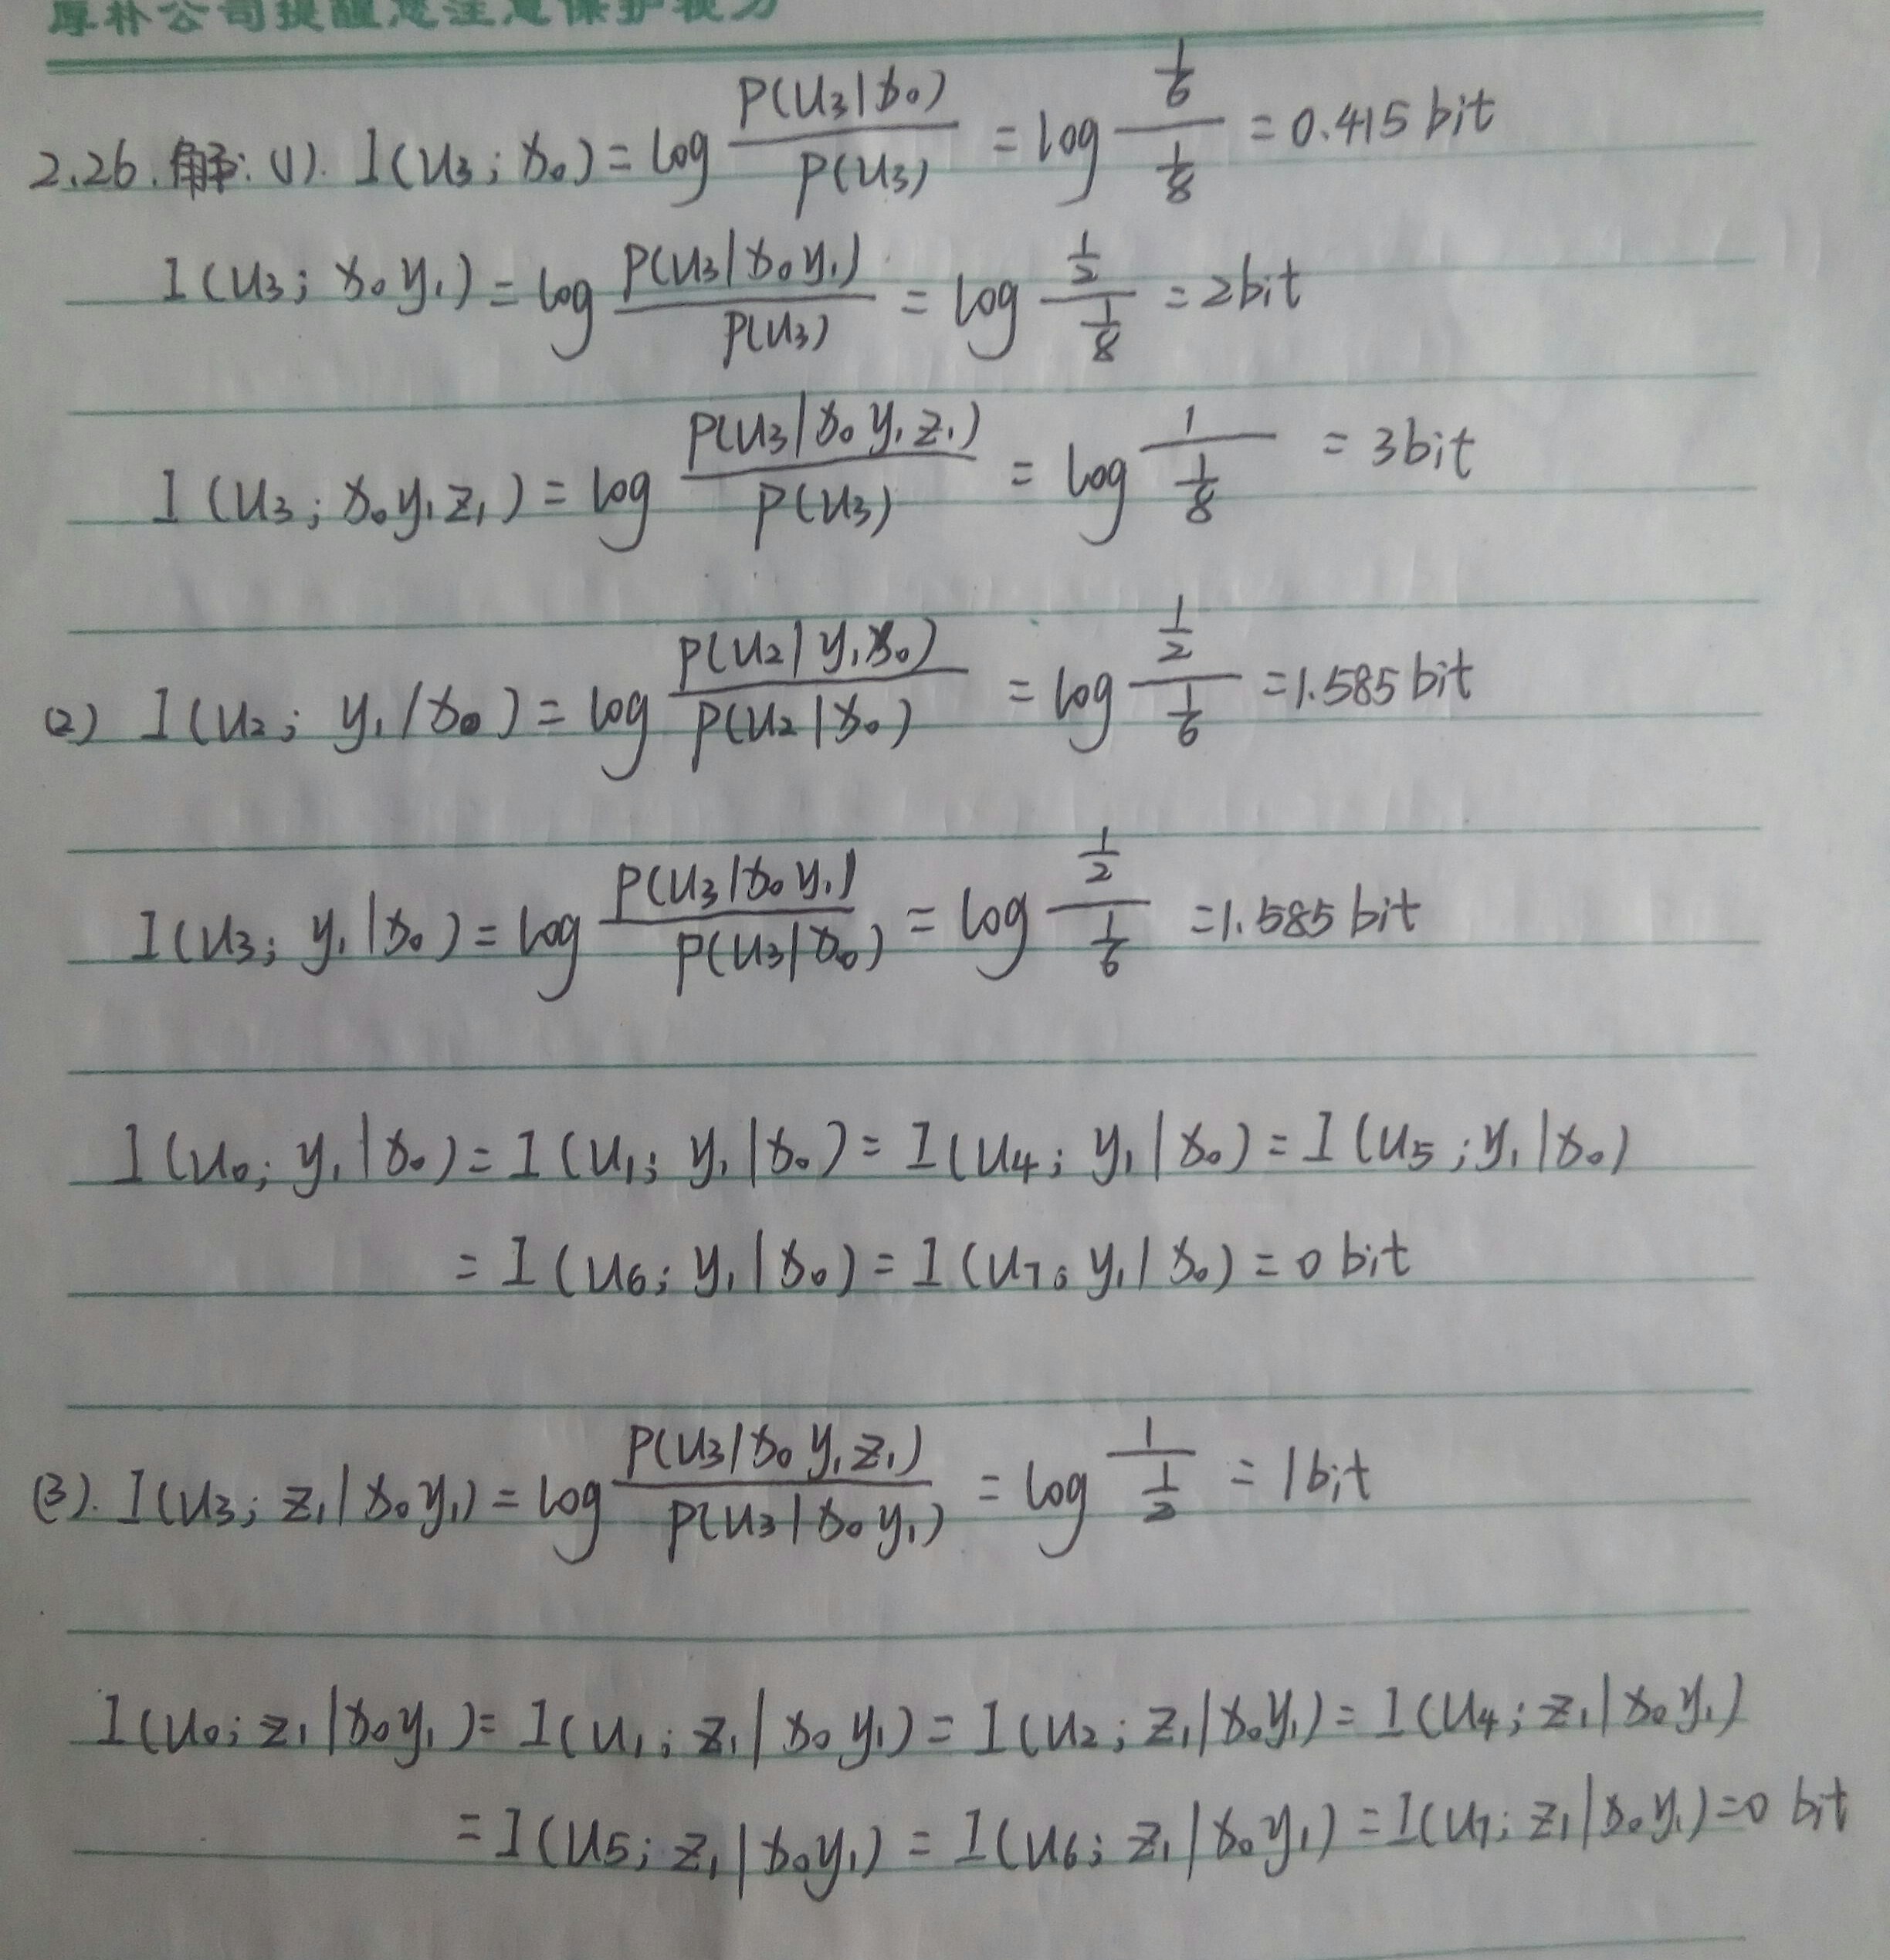 厚朴公司提醒您注意保护视力
2.26.解:(1). I(u₃; x₀) = log P(u₃|x₀) / P(u₃) = log (1/6) / (1/8) = 0.415 bit
I(u₃; x₀y₁) = log P(u₃|x₀y₁) / P(u₃) = log (1/2) / (1/8) = 2bit
I(u₃; x₀y₁z₁) = log P(u₃|x₀y₁z₁) / P(u₃) = log 1 / (1/8) = 3bit
(2) I(u₂; y₁|x₀) = log P(u₂|y₁x₀) / P(u₂|x₀) = log (1/2) / (1/6) = 1.585 bit
I(u₃; y₁|x₀) = log P(u₃|x₀y₁) / P(u₃|x₀) = log (1/2) / (1/6) = 1.585 bit
I(u₀; y₁|x₀) = I(u₁; y₁|x₀) = I(u₄; y₁|x₀) = I(u₅; y₁|x₀)
= I(u₆; y₁|x₀) = I(u₇; y₁|x₀) = 0 bit
(3). I(u₃; z₁|x₀y₁) = log P(u₃|x₀y₁z₁) / P(u₃|x₀y₁) = log 1 / (1/2) = 1bit
I(u₀; z₁|x₀y₁) = I(u₁; z₁|x₀y₁) = I(u₂; z₁|x₀y₁) = I(u₄; z₁|x₀y₁)
= I(u₅; z₁|x₀y₁) = I(u₆; z₁|x₀y₁) = I(u₇; z₁|x₀y₁) = 0 bit